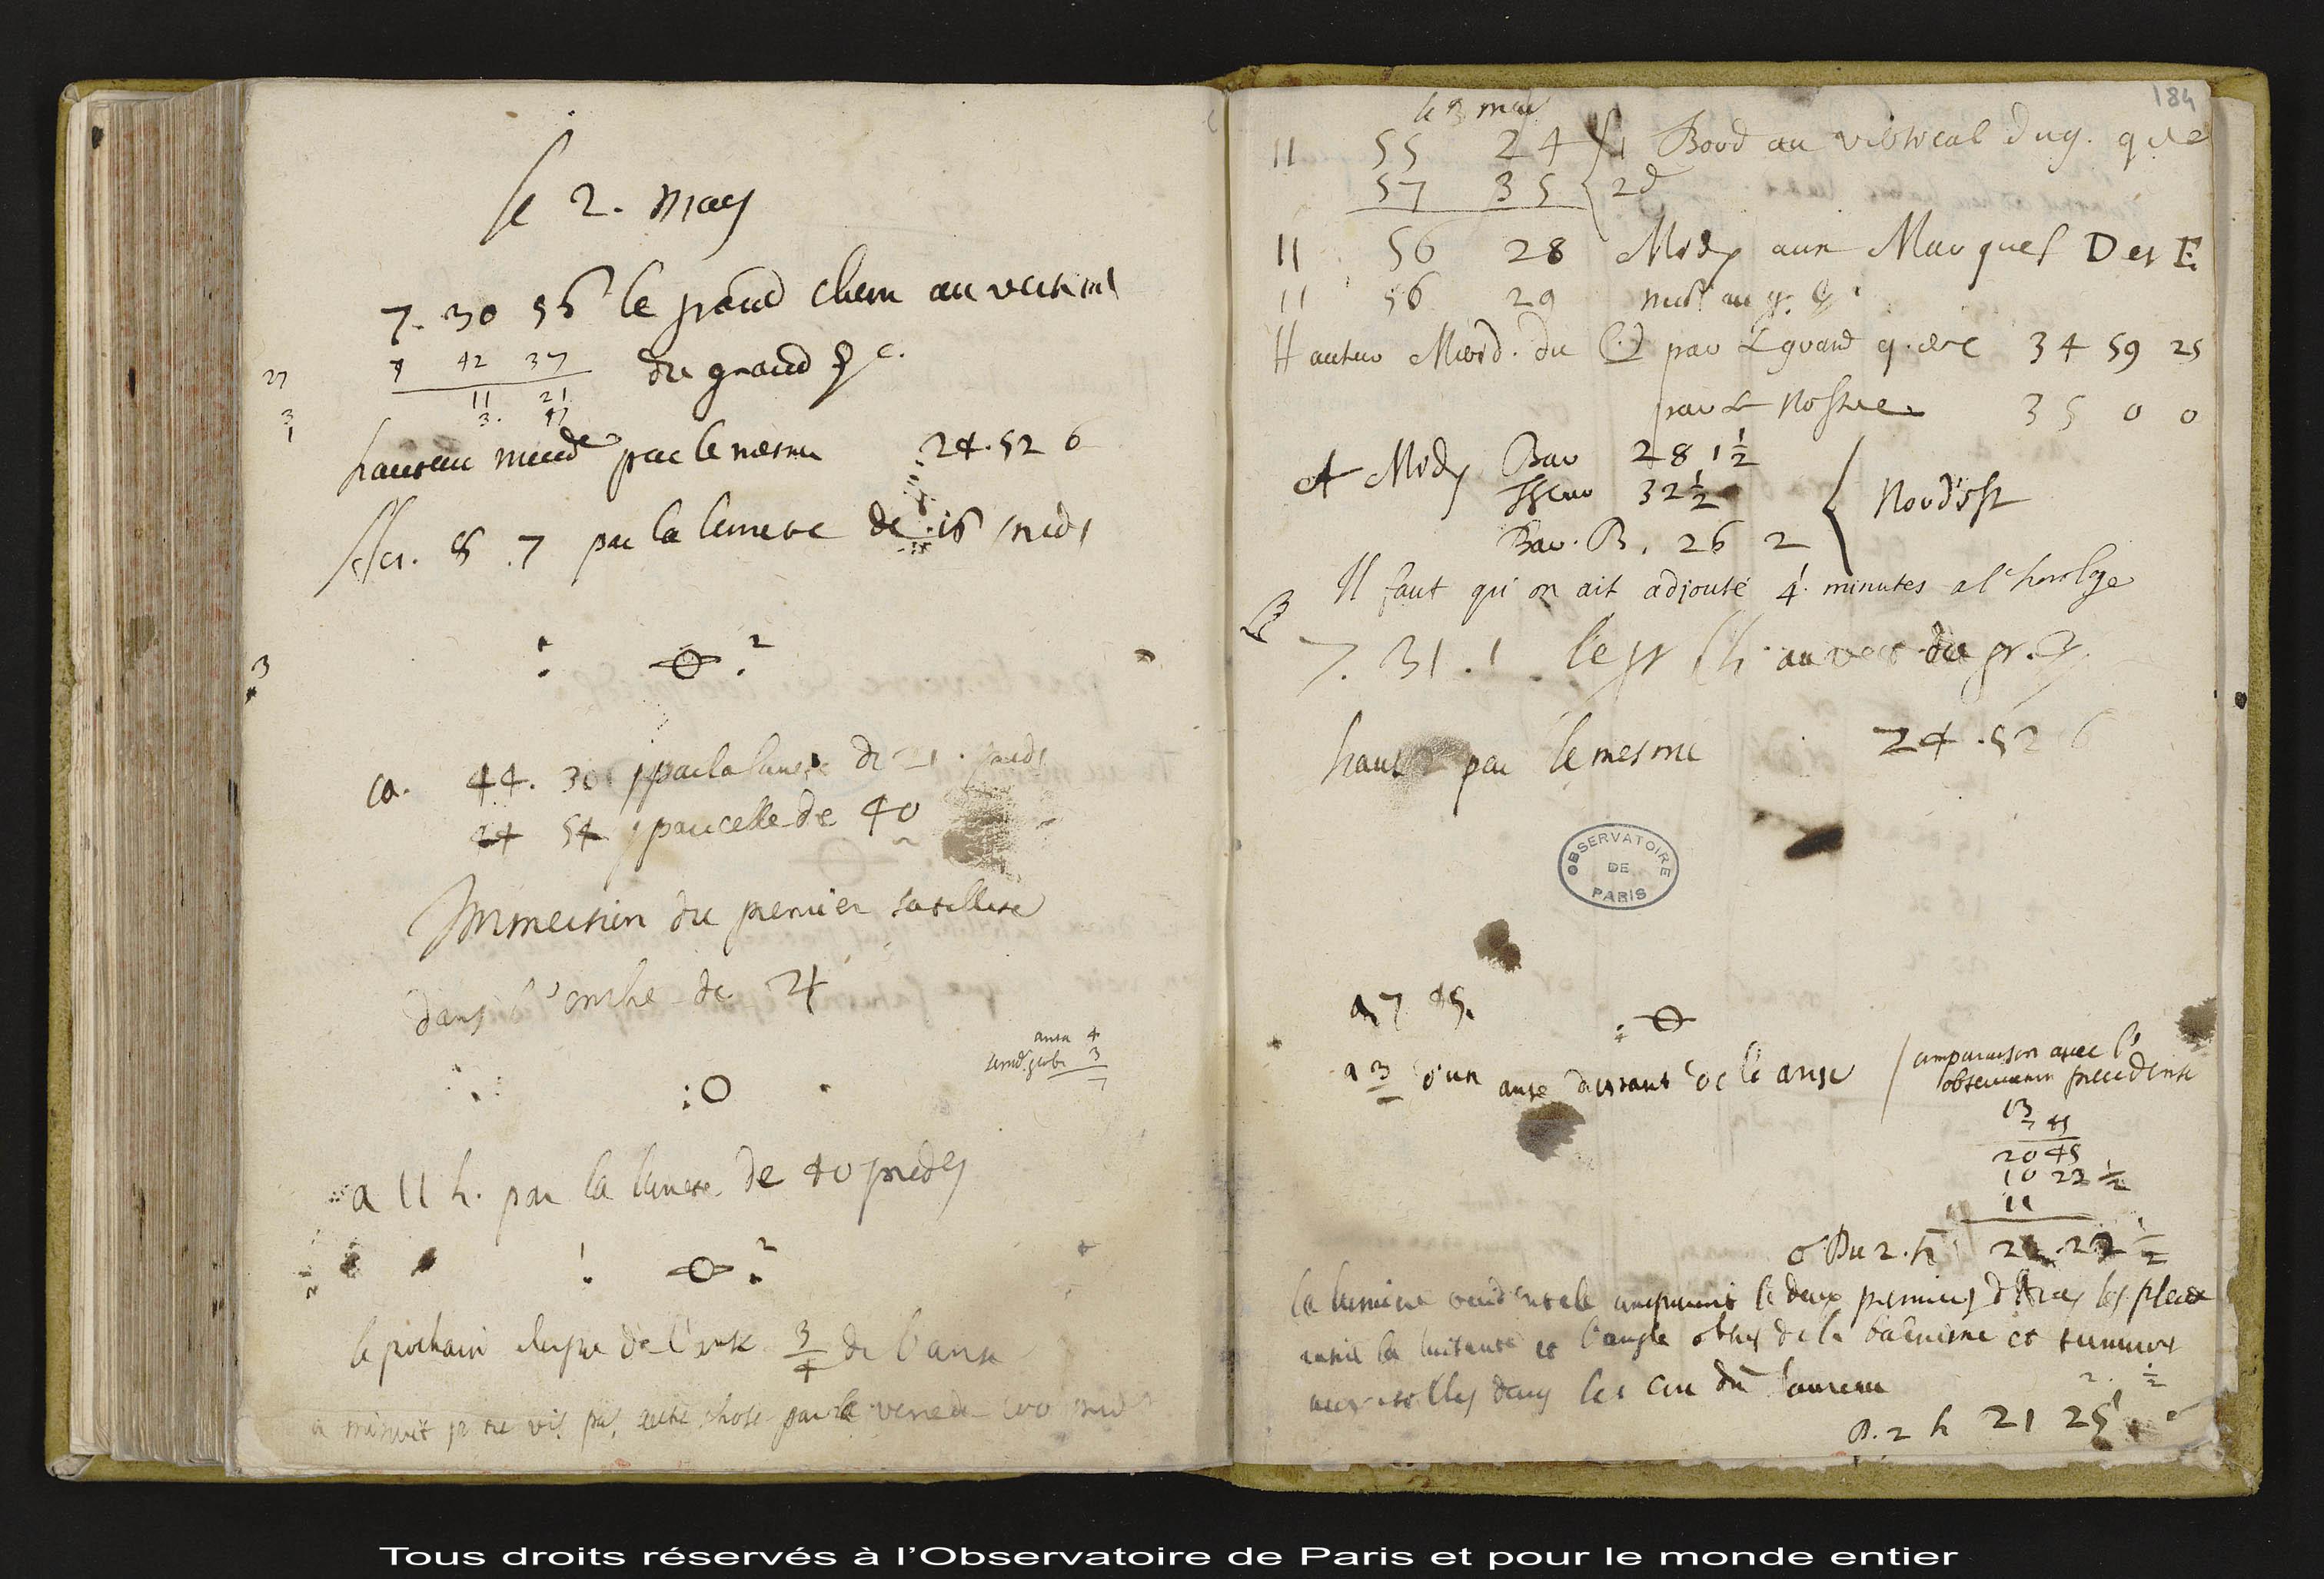 le 2. may
7. 30 55 le grand chien au vertical
7 42 37 du grand q c.
27
11 21
3. 47
3
1
hauteur merid par le mesme 24. 52 6
8 .7 par la lunette de 18 pieds
2
3
10. 44. 30 par la lunette de 21. pieds
44 54 par celle de 40
Immersion du premier satellite
dans l'ombre de ♃
ansa 4
semid. globi 3
7
a 11 h. par la lunette de 40 pieds
2
le prochain eloigné de l'anse 3/4 de l'anse
a minuit je ne vis pas autre chose par le verre de 100 pieds
184
le 3 mai
11 55 24 1 Bord au vertical du g. q de c
57 35 2d
11 56 28 Midy aux Marques D et E
11 56 29 midi au gr. q.
Hauteur Merid. du ☉ par le grand q. de c 34 59 25
par le nostre 35 0 0
A Midy Bar 28 1 1/2
Ther 32 1/2
Bar. B. 26 2
Nord'Est
Il faut qu'on ait adjouté 4' minutes a l'horloge
B
7. 31. 1 le gr Ch au ver du gr. q.
haut par le mesme 24. 52 6
OBSERVATOIRE DE PARIS
a 7 45.
a 3 d'un anse distant de l'anse
comparaison avec l'
observation precedente
13
7 45
20 45
10 22 1/2
11
Du 2. h 21. 22 1/2
la lumiere
et l'angle obtus de la
dans les du taureau
2. 1/2
D. 2 h 21 25
Tous droits réservés à l'Observatoire de Paris et pour le monde entier